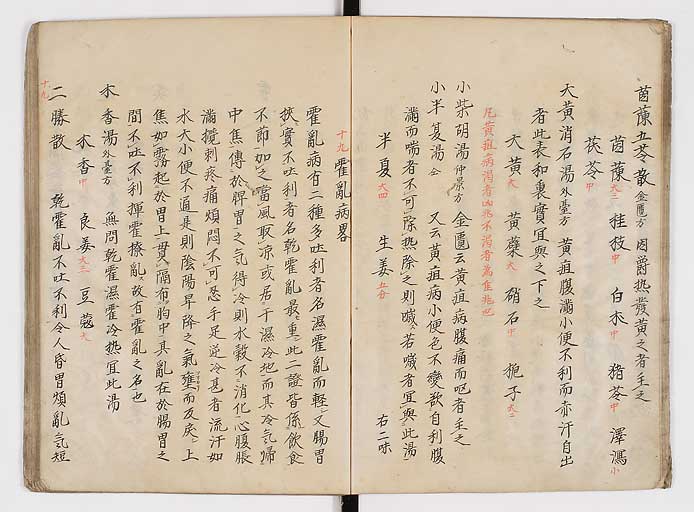 茵蔯五苓散 金匱方 因爵热發黄之者主之
茵蔯 大三 桂枝 中 白朮 中 猪苓 中 澤瀉 小
茯苓 中
大黄消石湯 外臺方 黄疸腹滿小便不利而赤汗自出
者此表和裏實宜與之下之
大黄 大 黄蘗 大 硝石 中 梔子 大二
凡黄疸病渇者凶兆不渇者為佳兆也
小柴胡湯 仲景方 金匱云黄疸病腹痛而嘔者主之
小半夏湯 仝 又云黄疸病小便色不變欲自利腹
滿而喘者不可除热除之則噦若噦者宜與此湯
半夏 大四 生姜 五分 右二味
十九 霍亂病畧
霍亂病有二種多吐利者名濕霍亂而軽又腸胃
挾實不吐利者名乾霍亂最重此二證皆係飲食
不節加之當風取凉或居于濕冷地而其冷氣歸
中焦傳於脾胃之氣得冷則水穀不消化心腹脹
滿攪刺疼痛煩悶不可忍手足逆冷甚者流汗如
水大小便不通是則陰陽早降之氣壅而反戾上
焦如霧起於胃上貫隔布胸中其亂在於腸胃之
間不吐不利揮霍撩亂故有霍亂之名也
木香湯 外臺方 無問乾霍濕霍冷热宜此湯
木香 中 良姜 大三 豆蔻 大
十九
二勝散 乾霍亂不吐不利令人昏冒煩亂氣短